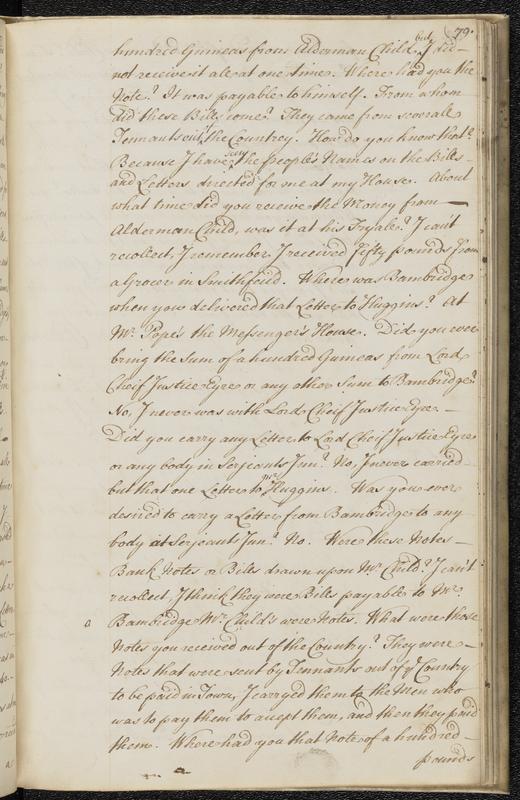 79.
hundred Guineas from Alderman Child, but I did
not receive it all at one time. Where had you the
Note? It was payable to himself. From whom
did these Bills come? They came from severall
Tennants in the Countrey. How do you know that?
Because I have seen the people's Names on the Bills
and Letters directed for me at my House. About
what time did you receive the Money from
Alderman Child, was it at his Tryale? I can't
recollect, I remember I received Fifty pounds from
a Grocer in Smithfeild. Where was Bambridge
when you delivered that Letter to Huggins? At
Mr. Pope's the Messenger's House. Did you ever
bring the Sum of a hundred Guineas from Lord
Cheif Justice Eyre or any other Sum to Bambridge?
No, I never was with Lord Cheif Justice Eyre.
Did you carry any Letter to Lord Cheif Justice Eyre
or any body in Serjeants Inn? No, I never carried
but that one Letter to Mr. Huggins. Was you ever
desired to carry a Letter from Bambridge to any
body at Serjeants Inn? No. Were these Notes
Bank Notes or Bills drawn upon Mr. Child? I can't
recollect, I think they were Bills payable to Mr.
a Bambridge Mr. Child's were Notes. What were those
Notes you received out of the Country? They were
Notes that were sent by Tennants out of ye Country
to be paid in Town, I carryed them to the Men who
was to pay them to accept them, and then they paid
them. Where had you that Note of a hundred
pounds